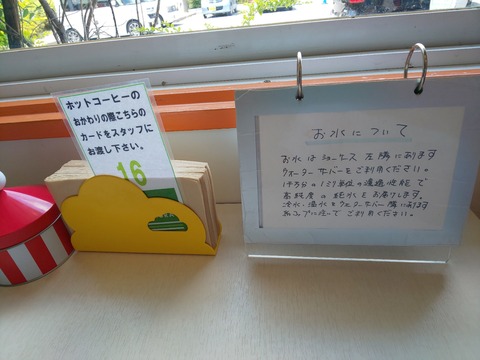 ホットコーヒーの
おかわりの際こちらの
カードをスタッフに
お渡し下さい。
16
お水について
お水はショーケス左隣にあります
ウォーターサーバーをご利用ください。
1千万分の1ミリ単位の濾過性能で
高純度の純水をお届けします。
冷水・温水をウォーターサーバー隣にあります
紙コップに注いでご利用ください。